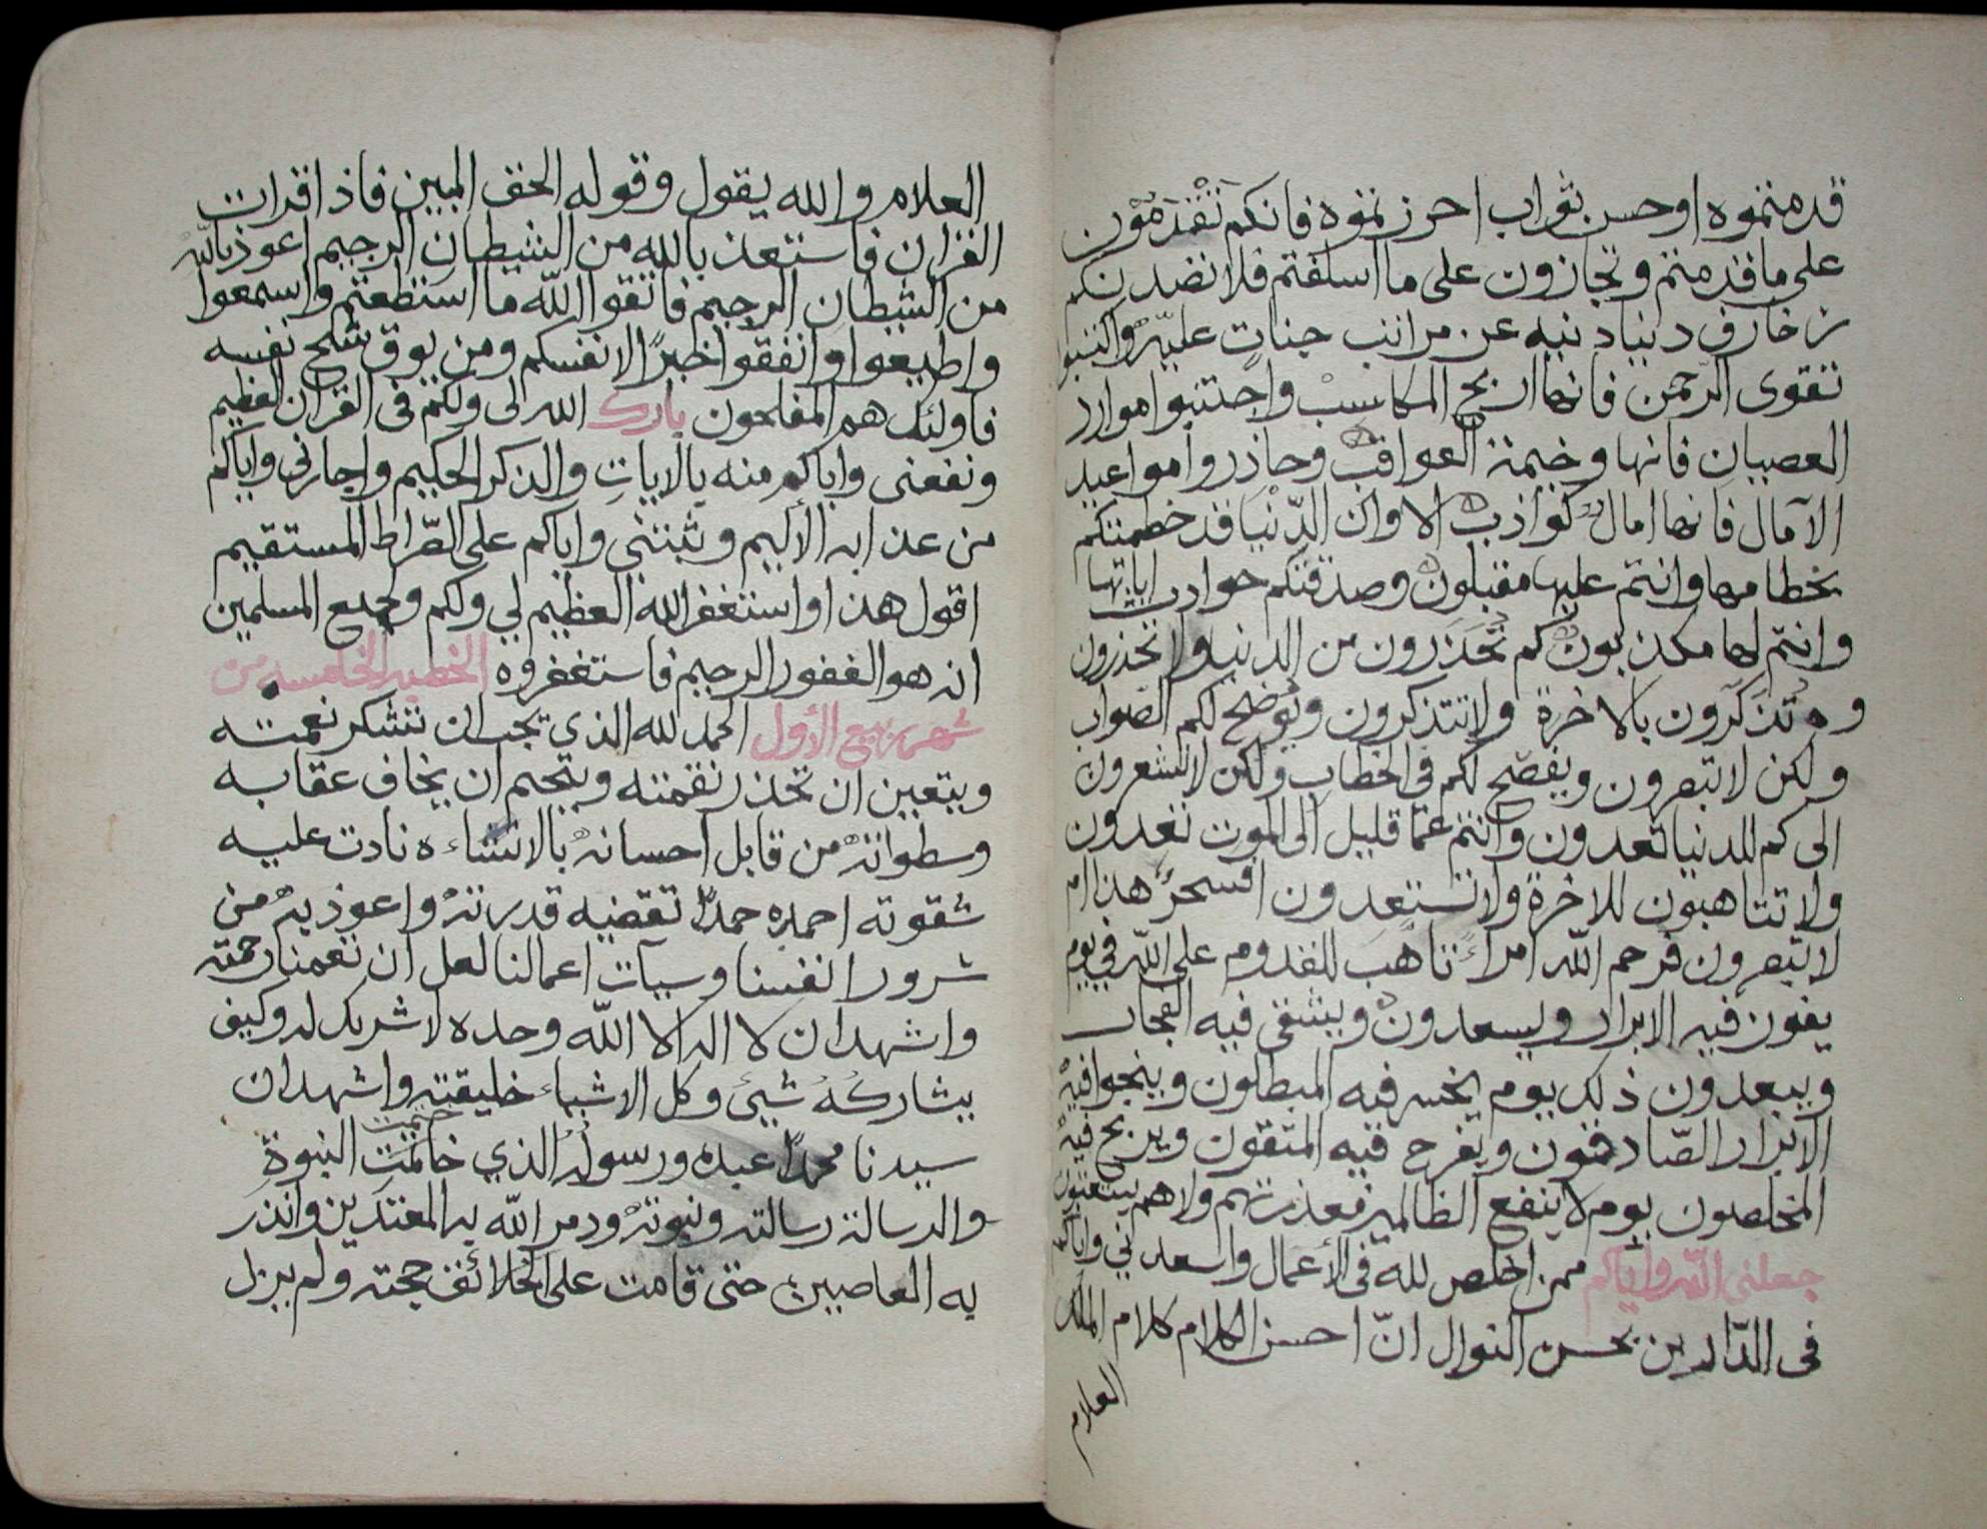 قدمتموه او حسن ثواب احرزتموه فانكم تقدمون
على ما قدمتم وتجازون على ما اسلفتم فلا تصدنكم
زخارف دنيا دنيه عن مراتب جنات عليه واكتسبوا
تقوى الرحمن فانها اربح المكاسب واجتنبوا موارد
العصيان فانها وخيمة العواقب وحاذروا مواعيد
الآمال فانها امال كواذب الا وان الدّنيا قد خطمتكم
بخطامها وانتم عليها مقبلون وصدقتكم حوادث اياتها
وانتم لها مكذبون كم تحذرون من الدنيا ولا تحذرون
وتذكرون بالاخرة ولا تتذكرون ويوضح لكم الصواب
ولكن لا تبصرون ويفصح لكم فى الخطاب ولكن لا تشعرون
الى كم للدنيا تعدون وانتم عمّا قليل الى الموت تغدون
ولا تتاهبون للاخرة ولا تستعدون افسحر هذا ام
لا تبصرون فرحم الله امراً تاهب للقدوم على الله في يوم
يفوز فيه الابرار ويسعدون ويشقى فيه الفجار
ويبعدون ذلك يوم يخسر فيه المبطلون وينجوا فيه
الابرار الصّادقون ويفرح فيه المتقون ويربح فيه
المخلصون يوم لا ينفع الظالمين معذرتهم ولا هم يستعتبون
جعلنى الله واياكم ممن اخلص لله فى الأعمال واسعدني واياكم
فى الدّارين بحسن النوال انّ احسن الكلام كلام الملك
العلام
العلام والله يقول وقوله الحق المبين فاذا قرات
القران فاستعذ بالله من الشيطان الرجيم اعوذ بالله
من الشيطان الرجيم فاتقوا الله ما استطعتم واسمعوا
واطيعوا وانفقوا خيرًا لانفسكم ومن يوق شح نفسه
فاولئك هم المفلحون بارك الله لى ولكم فى القران العظيم
ونفعنى واياكم منه بالايات والذكر الحكيم واجارنى واياكم
من عذابه الأليم وثبتنى واياكم على الصّراط المستقيم
اقول هذا واستغفر الله العظيم لي ولكم وجميع المسلمين
انه هو الغفور الرحيم فاستغفروه الخطبه الخامسه من
شهر ربيع الأول الحمد لله الذي تجب ان تشكر نعمته
ويتعين ان تحذر نقمته ويتحتم ان يخاف عقابه
وسطواته من قابل احسانه بالاساءه نادت عليه
شقوته احمده حمدًا تقضيه قدرته واعوذ به من
شرور انفسنا وسيآت اعمالنا لعل ان تعمنا رحمته
واشهد ان لا اله الا الله وحده لا شريك له وكيف
يشاركهُ شيئ وكل الاشياء خليقته واشهد ان
سيدنا محمدًا عبده ورسوله الذي ختمت النبوة
والرسالة رسالته ونبوته ودمر الله به المعتدين وانذر
به العاصين حتى قامت على الخلائق حجته ولم يزل